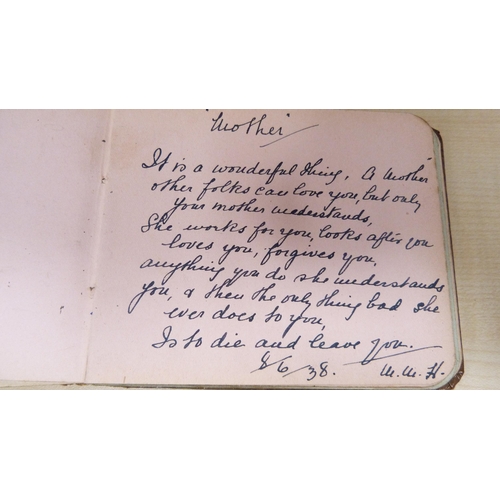 Mother
It is a wonderful thing, A Mother
other folks can love you, but only
your mother understands,
She works for you, looks after you
loves you, forgives you,
anything you do she understands
you, & then the only thing bad she
ever does to you,
Is to die and leave you.
8/6/38. M.M.H.